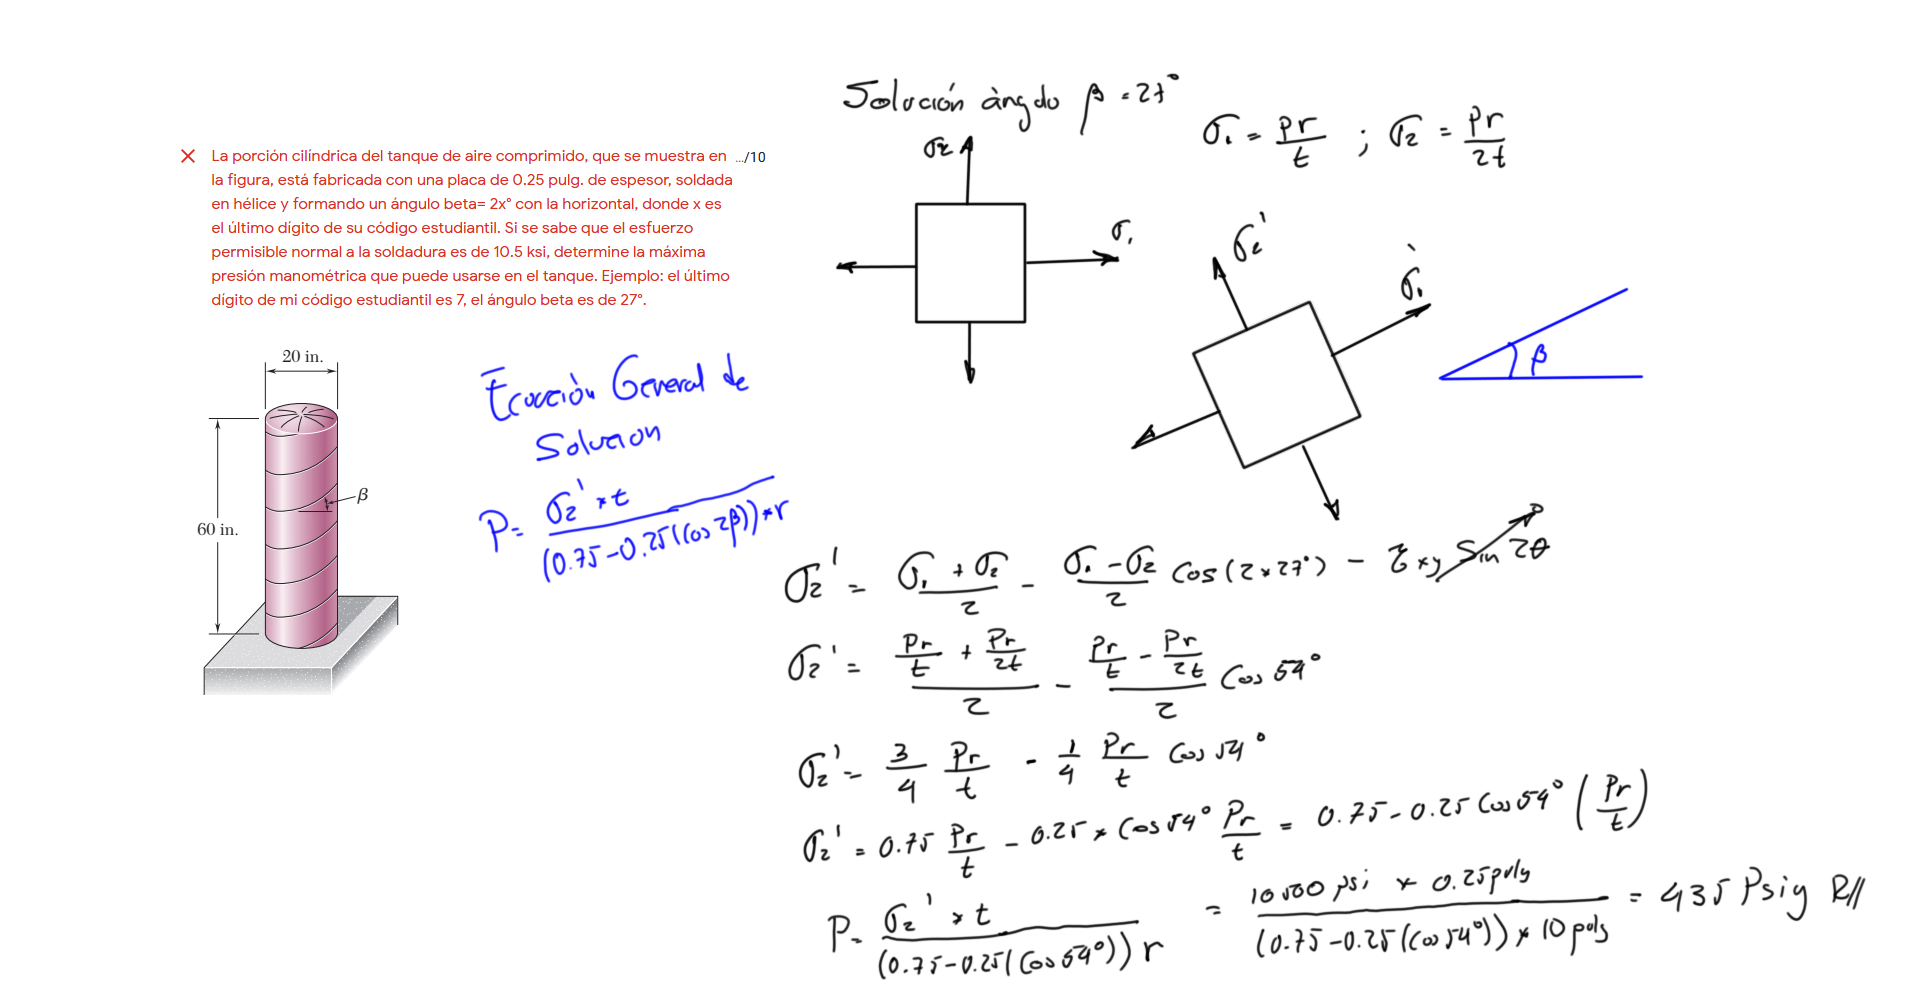 La porción cilíndrica del tanque de aire comprimido, que se muestra en .../10
la figura, está fabricada con una placa de 0.25 pulg. de espesor, soldada
en hélice y formando un ángulo beta= 2x° con la horizontal, donde x es
el último dígito de su código estudiantil. Si se sabe que el esfuerzo
permisible normal a la soldadura es de 10.5 ksi, determine la máxima
presión manométrica que puede usarse en el tanque. Ejemplo: el último
dígito de mi código estudiantil es 7, el ángulo beta es de 27°.
20 in.
60 in.
β
Ecuación General de
Solucion
P = σ2' * t / (0.75 - 0.25(Cos 2β)) * r
Solución àngulo β = 27°
σ1 = Pr/t ; σ2 = Pr/2t
σ2
σ1
σ2'
σ1'
β
σ2' = (σ1 + σ2)/2 - (σ1 - σ2)/2 Cos(2*27°) - τxy Sin 2θ 0
σ2' = (Pr/t + Pr/2t)/2 - (Pr/t - Pr/2t)/2 Cos 54°
σ2' = 3/4 Pr/t - 1/4 Pr/t Cos 54°
σ2' = 0.75 Pr/t - 0.25 * Cos 54° Pr/t = 0.75 - 0.25 Cos 54° (Pr/t)
P = σ2' * t / (0.75 - 0.25(Cos 54°)) r = 10500 psi * 0.25 pulg / (0.75 - 0.25(Cos 54°)) * 10 pulg = 435 Psig R//